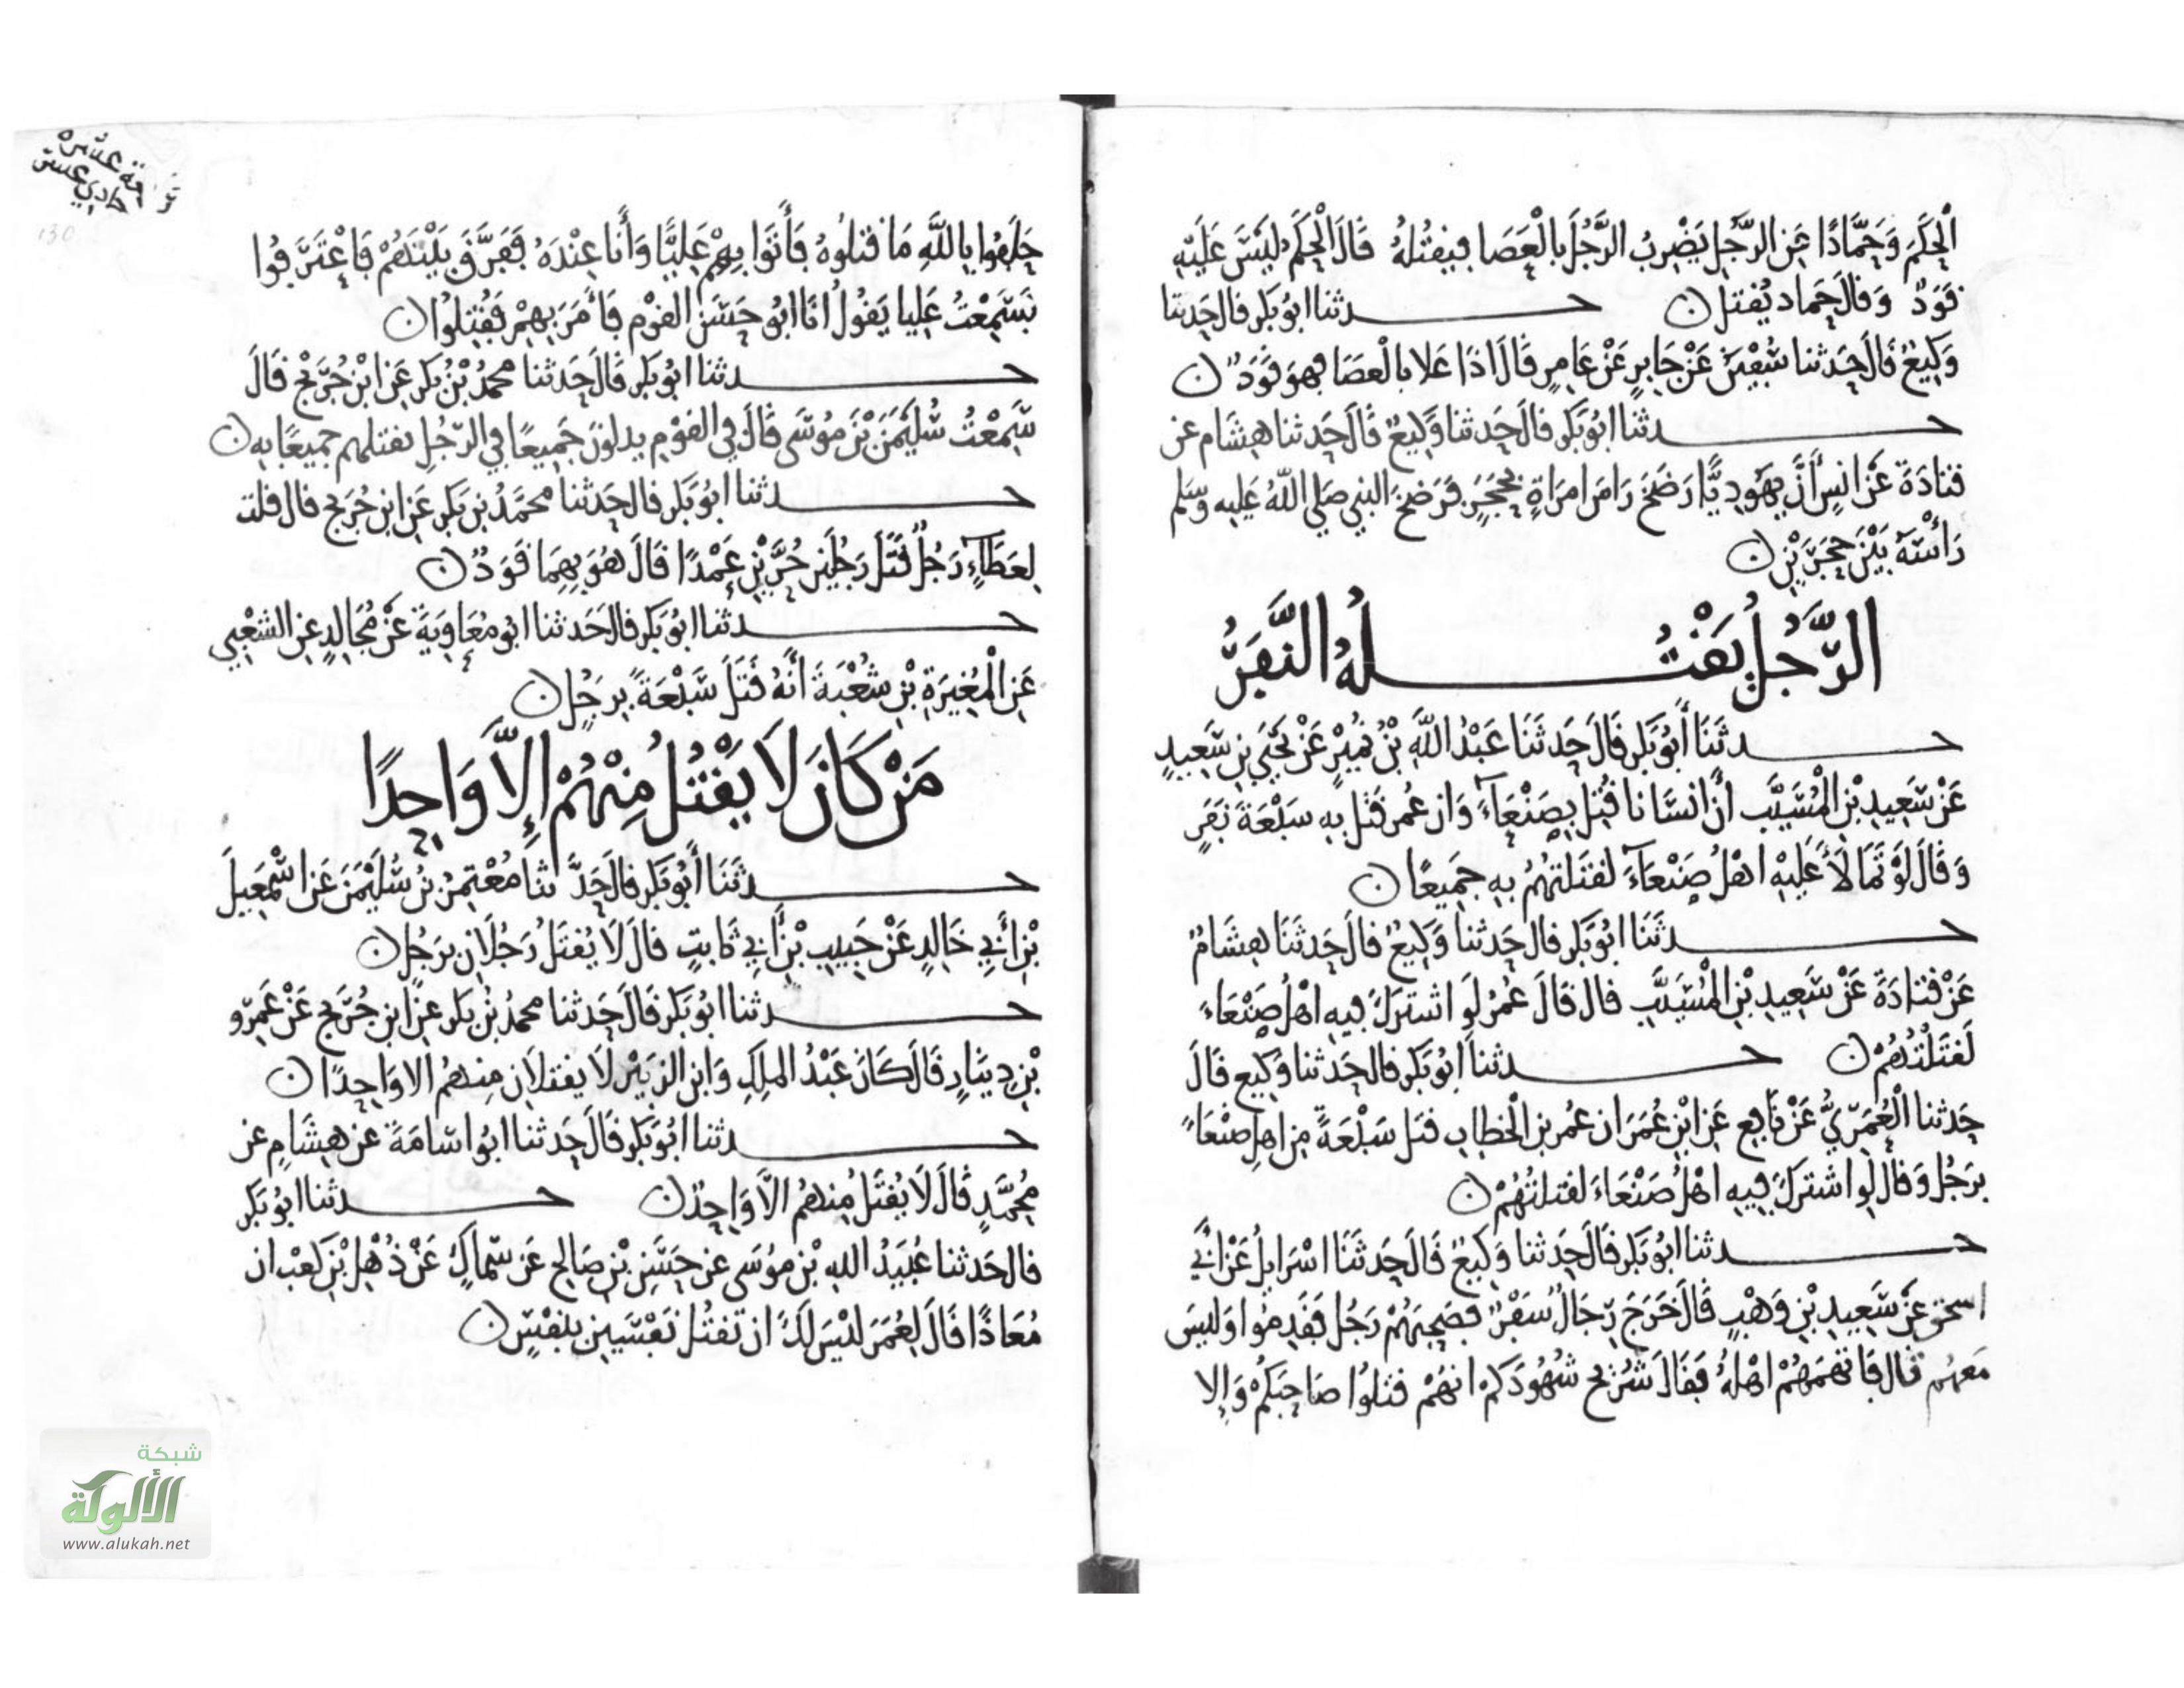 الْحَكَمَ وَحَمَّادًا عَنِ الرَّجُلِ يَضْرِبُ الرَّجُلَ بِالْعَصَا فيَقتُلهُ قَالَ الْحَكَمُ لَيْسَ عَلَيْهِ
قَوَدٌ وَقَالَ حَماد يُقتل ۞ حدثنا ابُو بَكر قال حَدثنا
وَكِيعٌ قَالَ حَدثنا سُفْيَنُ عَنْ جَابِرٍ عَنْ عَامِرٍ قَالَ اذَا عَلا بالْعَصَا فهوَ قَوَدٌ ۞
حدثنا ابُو بَكر قالَ حَدثنا وَكِيعٌ قَالَ حَدثنا هِشَام عن
قتادَةَ عَنْ انسٍ أَنَّ يَهُودِيًّا رَضَخَ رَاسَ امرَاةٍ بحَجَرٍ فَرَضخَ النبي صَلي اللهُ عَليه وَسَلم
رَاْسَهُ بَيْنَ حَجَرَيْنِ ۞
الرَّجُلُ يَقْتُلهُ النَّفَرُ
حدثَنَا أَبُو بَكر قَالَ حَدثَنَا عَبْدُ اللَّهِ بْنُ نُمَيْرٍ عَنْ يَحْيَي بنِ سَعِيدٍ
عَنْ سَعِيدِ بْنِ المُسَيَّب أَنَّ انسَانا قُتِلَ بِصَنْعَآءَ وَان عُمر قَتل بِهِ سَبْعَةَ نَفَرٍ
وَقَالَ لَوْ تَمَالَأَ عَلَيْهِ اهْلُ صَنْعَآءَ لقتَلتهُمْ بِهِ جَمِيعًا ۞
حدثَنَا ابُو بَكر قال حَدثنا وَكِيعٌ قالَ حَدثَنَا هِشَامٌ
عَنْ قتادَةَ عَنْ سَعِيدِ بْنِ المُسَيَّبِ قال قَالَ عُمرُ لَو اشتركَ فِيهِ اهْلُ صَنْعَاءَ
لَقتَلْتُهُمْ ۞ حدثنا ابُو بَكر قال حَدثنا وَكِيع قَالَ
حَدثنا الْعُمَرِيُّ عَنْ نَافِع عَنِ ابْنِ عُمَرَ ان عُمر بن الْخَطاب قتل سَبْعَةً مِن اهلِ صَنْعَاءَ
برَجُل وَقالَ لَو اشتركَ فِيهِ اهْلُ صَنْعَاءَ لقتلتُهُمْ ۞
حدثنا ابُو بَكر قَالَ حَدثنا وَكِيعٌ قَالَ حَدثَنَا اسْرَايلُ عَنْ أبي
اسحق عَنْ سَعِيدِ بْنِ وَهْبٍ قَالَ خَرَجَ رِجَالٌ سَفْرٌ فصَحِبَهُمْ رَجُل فَقَدِمُوا وَليسَ
مَعهُم قال فَاتهَمَهُمْ اهْلُهُ فَقَالَ شُرَيح شُهُودَكُمْ انهُمْ قتلوُا صَاحِبَكُمْ وَإِلا
قراءة عشر
حادي عشر
130
حَلَفُوا بِاللَّهِ مَا قتلُوهُ فَأَتَوا بِهِمْ عَلِيًّا وَأَنَا عِنْدَهُ فَفَرَّقَ بَيْنَهُمْ فَاعْتَرَفُوا
فَسَمِعْتُ عَلِيا يَقُولُ انَا ابُو حَسَن القوْم فَأَمَرَ بِهِمْ فَقُتِلُوا ۞
حدثنا ابُو بَكر قَالَ حَدثنا محمدُ بْنُ بكر عَنِ ابْنِ جُرَيْج قَالَ
سَمِعْتُ سُلَيْمَنَ بْنَ مُوسَى قَالَ فِي القوْم يدلونَ جَمِيعًا فِي الرّجُلِ يقتلهم جميعًا بِه ۞
حدثنا ابُو بَكر قال حَدثنا محَمَّدُ بن بَكر عَنِ ابن جُرَيج قال قلت
لِعَطَآءٍ رَجُلٌ قَتَلَ رَجُلَيْنِ حُرَّيْنِ عَمْدًا قَالَ هُوَ بِهِمَا قَوَدٌ ۞
حدثنا ابُو بَكر قالَ حَدثنا ابو مُعَاوِيَةَ عَنْ مُجَالِدٍ عَنِ الشعْبِي
عَنِ الْمُغِيرَةِ بْنِ شُعْبَةَ أَنَّهُ قَتَلَ سَبْعَةً بِرَجُلٍ ۞
مَنْ كَانَ لَا يَقْتُلُ مِنْهُمْ إِلَّا وَاحِدًا
حدثَنَا أَبُو بَكر قال حَدَّثنا مُعْتمِرُ بْنُ سُلَيْمَنَ عَن اسْمَعِيلَ
بْنِ أَبِي خَالِدٍ عَنْ حَبِيبِ بْنِ أَبِي ثَابتٍ قالَ لَا يُقتَلُ رَجُلَانِ برَجُلٍ ۞
حدثنا ابُو بَكر قَالَ حَدثنا محمدُ بْنُ بَكر عَنِ ابن جُرَيج عَنْ عَمْرِو
بْنِ دِينَارٍ قَالَ كَانَ عَبْدُ المَلِكِ وَابن الزبَيْر لَا يقتلَانِ مِنهُمُ الا وَاحِدًا ۞
حدثنا ابُو بَكر قَالَ حَدثنا ابُو اسَامَةَ عَن هِشَامِ عن
مُحَمَّدٍ قَالَ لَا يُقتَلُ مِنهُم الَّا وَاحِدٌ ۞ حدثنا ابُو بَكر
قال حَدثنا عُبَيْدُ اللهِ بْن مُوسَى عن حَسَنِ بْنِ صَالِح عَن سِمَاكٍ عَنْ ذُهْلِ بْنِ كَعْب ان
مُعَاذًا قَالَ لِعُمَرَ لَيْسَ لَكَ ان تَقتُل نَفْسَيْنِ بنَفْسٍ ۞
شبكة
الألوكة
www.alukah.net